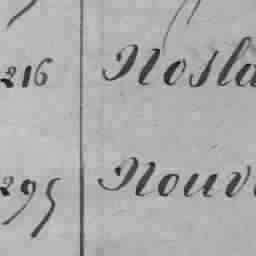 216 Nosla
295 Nouv